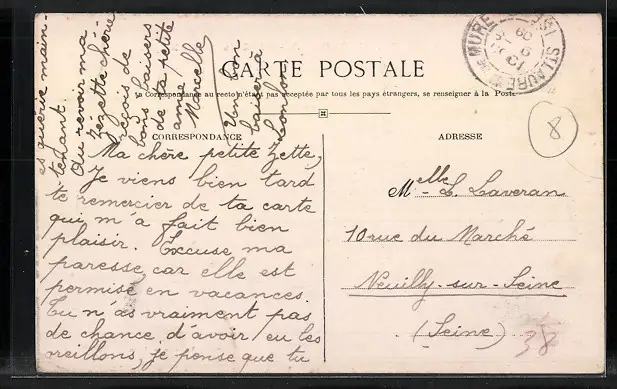 CARTE POSTALE
La Correspondance au recto n'étant pas acceptée par tous les pays étrangers, se renseigner à la Poste
CORRESPONDANCE
Ma chère petite Zette,
Je viens bien tard
te remercier de ta carte
qui m'a fait bien
plaisir. Excuse ma
paresse, car elle est
permise en vacances.
Tu n'as vraiment pas
de chance d'avoir eu les
oreillons, je pense que tu
es guérie main-
tenant.
Au revoir ma
Zézette chérie
reçois de
bons baisers
de ta petite
amie
Marcelle
Un bon
baiser à
ADRESSE
Melle L. Laveran
10 rue du Marché
Neuilly-sur-Seine
(Seine)
8
38
ST LAURENT
MURE